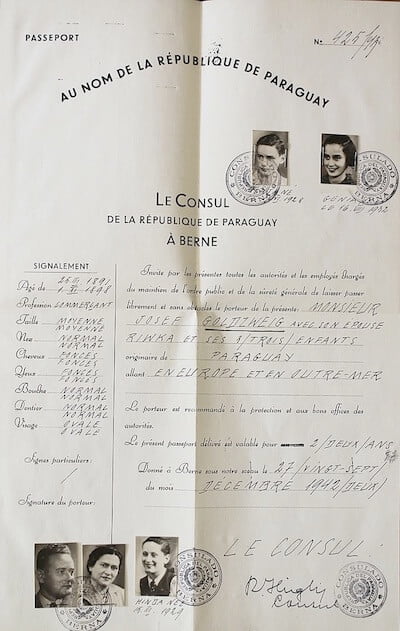 PASSEPORT
N°
AU NOM DE LA RÉPUBLIQUE DE PARAGUAY
CONSULADO
BERNA
CONSULADO
BERNA
LE CONSUL
DE LA RÉPUBLIQUE DE PARAGUAY
À BERNE
SIGNALEMENT
1891
Agé de 1898
Profession COMMERÇANT
Taille MOYENNE
MOYENNE
Nez NORMAL
NORMAL
Cheveux FONCÉS
FONCÉS
Yeux FONCÉS
FONCÉS
Bouche NORMAL
NORMAL
Dentier NORMAL
NORMAL
Visage OVALE
OVALE
Signes particuliers:
/
Signature du porteur:
Invite par les présentes toutes les autorités et les employés chargés
du maintien de l'ordre public et de la sûreté générale de laisser passer
librement et sans obstacles le porteur de la présente: MONSIEUR
JOSEF GOLDZWEIG AVEC SON EPOUSE
RIWKA ET SES 3/TROIS/ENFANTS
originaire de PARAGUAY
allant EN EUROPE ET EN OUTRE-MER
Le porteur est recommandé à la protection et aux bons offices des
autorités.
Le présent passeport délivré est valable pour 2/DEUX/ANS
Donné à Berne sous notre sceau le 27/VINGT-SEPT/
du mois DÉCEMBRE 1942/DEUX/
LE CONSUL:
R Hügly
Consul
CONSULADO
BERNA
CONSULADO
BERNA
BERNA